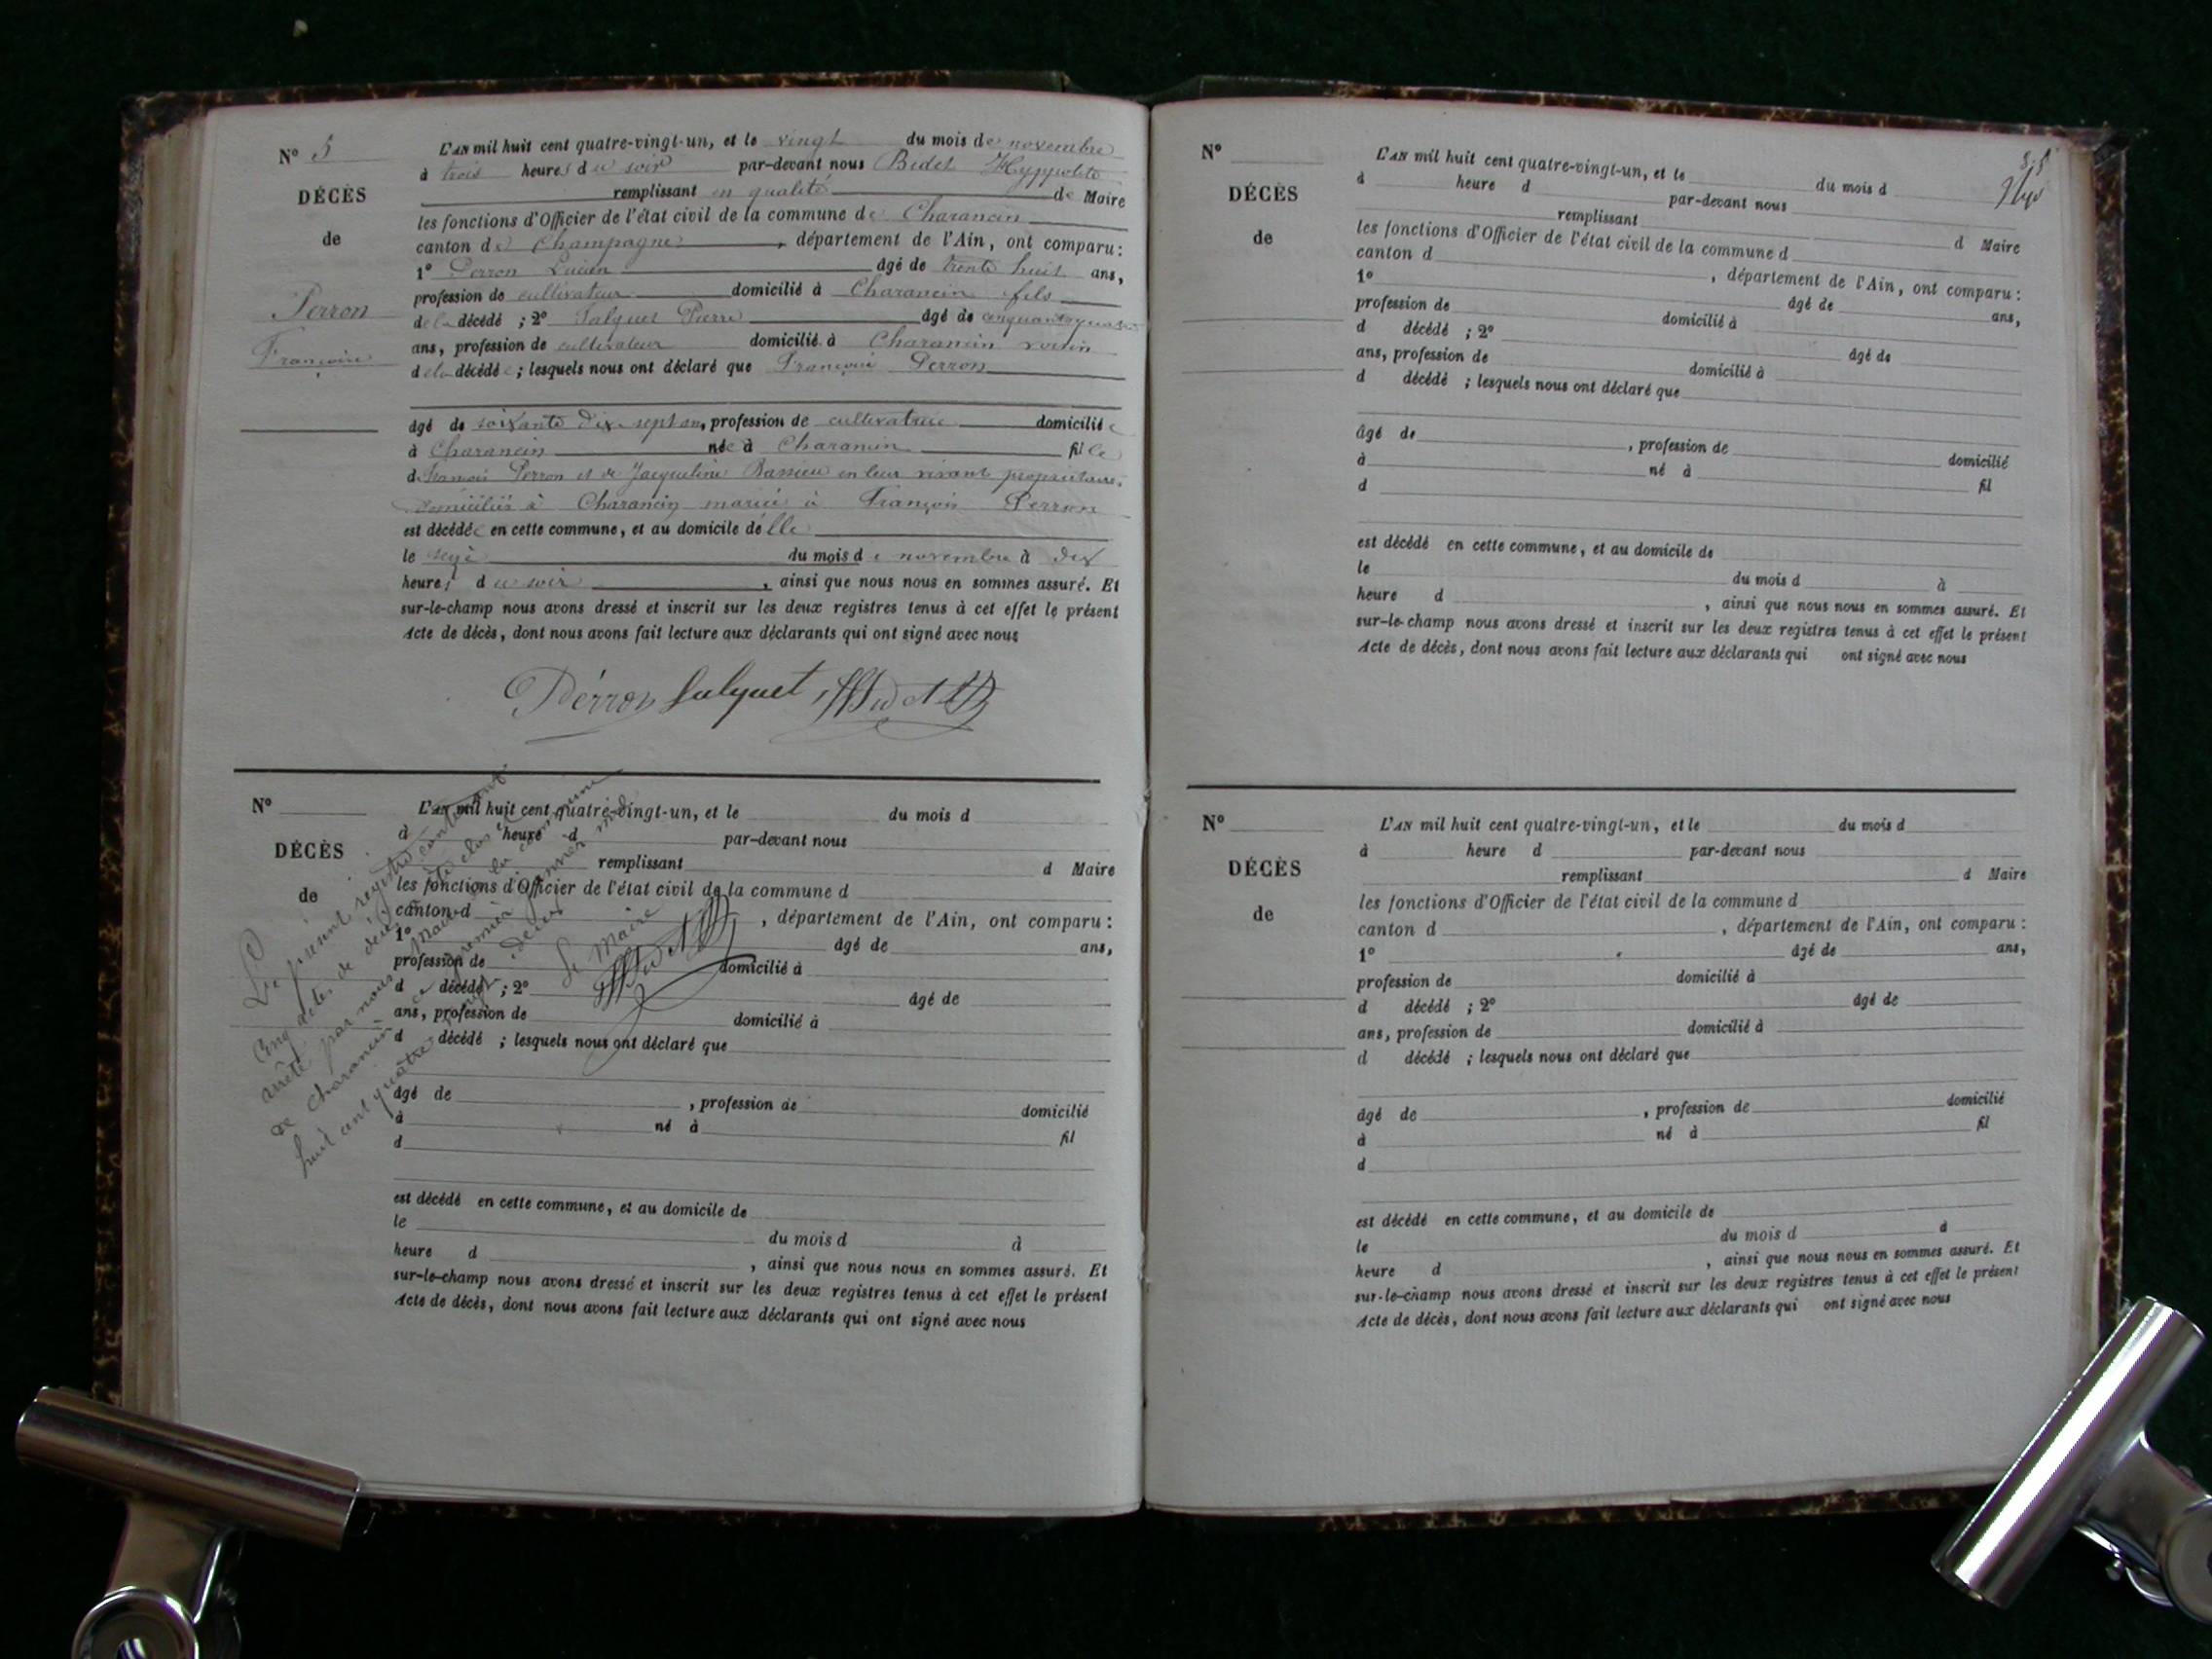 N° 5
DÉCÈS
de
Perron
Françoise
L'AN mil huit cent quatre-vingt-un, et le vingt du mois de novembre
à trois heures du soir par-devant nous Bidet Hyppolite
remplissant en qualité de Maire
les fonctions d'Officier de l'état civil de la commune de Charancin
canton de Champagne, département de l'Ain, ont comparu :
1° Perron Lucien âgé de trente huit ans,
profession de cultivateur domicilié à Charancin fils
de la décédé ; 2° Pierre âgé de cinquante quatre
ans, profession de cultivateur domicilié à Charancin voisin
de la décédée ; lesquels nous ont déclaré que Françoise Perron
âgé de soixante dix sept ans, profession de cultivatrice domiciliée
à Charancin née à Charancin fille
de François Perron et de Jacqueline en leur vivant propriétaires,
domiciliés à Charancin mariée à François Perron
est décédée en cette commune, et au domicile d'elle
le seize du mois de novembre à dix
heures du soir, ainsi que nous nous en sommes assuré. Et
sur-le-champ nous avons dressé et inscrit sur les deux registres tenus à cet effet le présent
Acte de décès, dont nous avons fait lecture aux déclarants qui ont signé avec nous
Perron Salquet
N°
DÉCÈS
de
L'AN mil huit cent quatre-vingt-un, et le du mois d
à heure d par-devant nous
remplissant d Maire
les fonctions d'Officier de l'état civil de la commune d
canton d , département de l'Ain, ont comparu :
1° âgé de ans,
profession de domicilié à
d décédé ; 2° âgé de
ans, profession de domicilié à
d décédé ; lesquels nous ont déclaré que
âgé de , profession de domicilié
à né à fil
d
est décédé en cette commune, et au domicile de
le du mois d à
heure d , ainsi que nous nous en sommes assuré. Et
sur-le-champ nous avons dressé et inscrit sur les deux registres tenus à cet effet le présent
Acte de décès, dont nous avons fait lecture aux déclarants qui ont signé avec nous
Le présent registre contenant
Cinq actes de décès clos et
arrêté par nous Maire de la commune
de Charancin ce premier janvier mil
huit cent quatre vingt deux
Le Maire
N°
DÉCÈS
de
L'AN mil huit cent quatre-vingt-un, et le du mois d
à heure d par-devant nous
remplissant d Maire
les fonctions d'Officier de l'état civil de la commune d
canton d , département de l'Ain, ont comparu :
1° âgé de ans,
profession de domicilié à
d décédé ; 2° âgé de
ans, profession de domicilié à
d décédé ; lesquels nous ont déclaré que
âgé de , profession de domicilié
à né à fil
d
est décédé en cette commune, et au domicile de
le du mois d à
heure d , ainsi que nous nous en sommes assuré. Et
sur-le-champ nous avons dressé et inscrit sur les deux registres tenus à cet effet le présent
Acte de décès, dont nous avons fait lecture aux déclarants qui ont signé avec nous
N°
DÉCÈS
de
L'AN mil huit cent quatre-vingt-un, et le du mois d
à heure d par-devant nous
remplissant d Maire
les fonctions d'Officier de l'état civil de la commune d
canton d , département de l'Ain, ont comparu :
1° âgé de ans,
profession de domicilié à
d décédé ; 2° âgé de
ans, profession de domicilié à
d décédé ; lesquels nous ont déclaré que
âgé de , profession de domicilié
à né à fil
d
est décédé en cette commune, et au domicile de
le du mois d à
heure d , ainsi que nous nous en sommes assuré. Et
sur-le-champ nous avons dressé et inscrit sur les deux registres tenus à cet effet le présent
Acte de décès, dont nous avons fait lecture aux déclarants qui ont signé avec nous